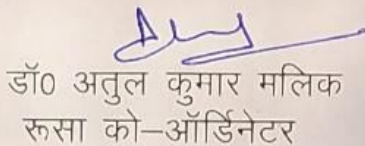 डॉ0 अतुल कुमार मलिक
रूसा को–ऑर्डिनेटर